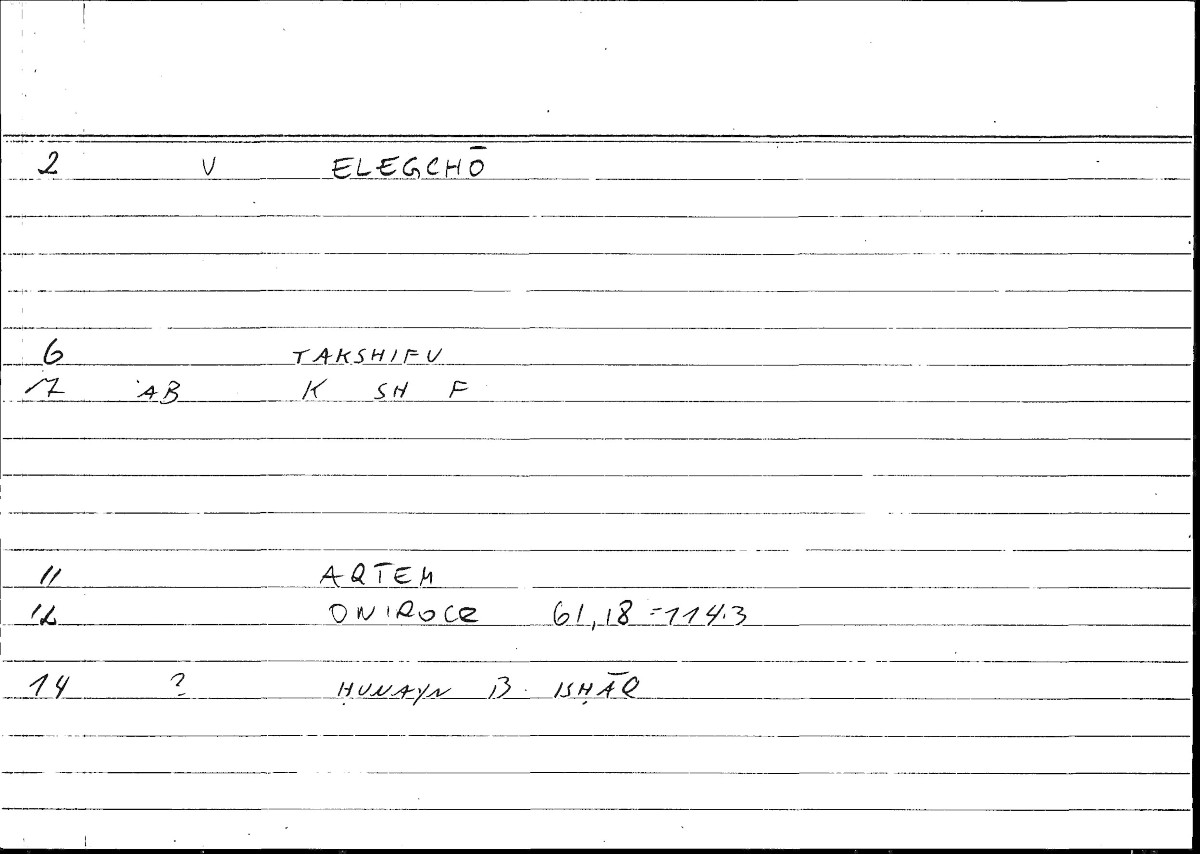 2 V ELEGCHŌ
6 TAKSHIFU
7 AB K SH F
11 ARTEM
12 ONIROCR 61,18 = 114.3
14 ? ḤUNAYN B. ISḤĀQ